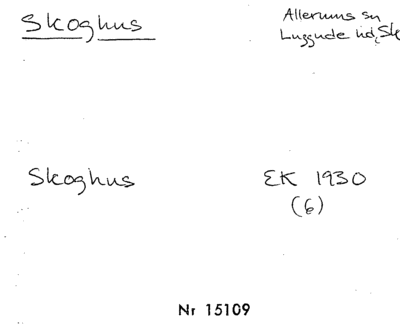 Skoghus
Allerums sn
Luggude hd, Sk
Skoghus
EK 1930
(6)
Nr 15109